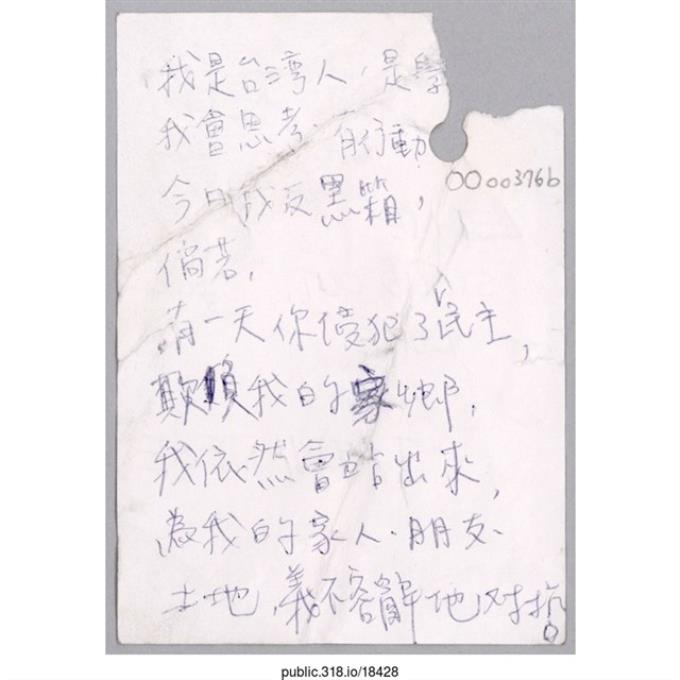 我是台湾人，是學
我會思考 行動
00003766
今日我反黑箱，
倘若，
有一天你侵犯了民主，
欺負我的家鄉，
我依然會站出來，
為我的家人、朋友、
土地，義不容辭地对抗。
public.318.io/18428